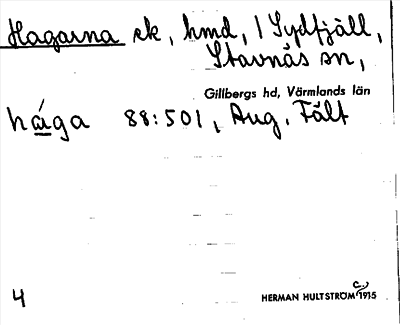 Hagarna sk, hmd, / Sydfjäll,
Stavnäs sn,
Gillbergs hd, Värmlands län
hága 88:501, Aug. Fält
4
HERMAN HULTSTRÖM c. 1915